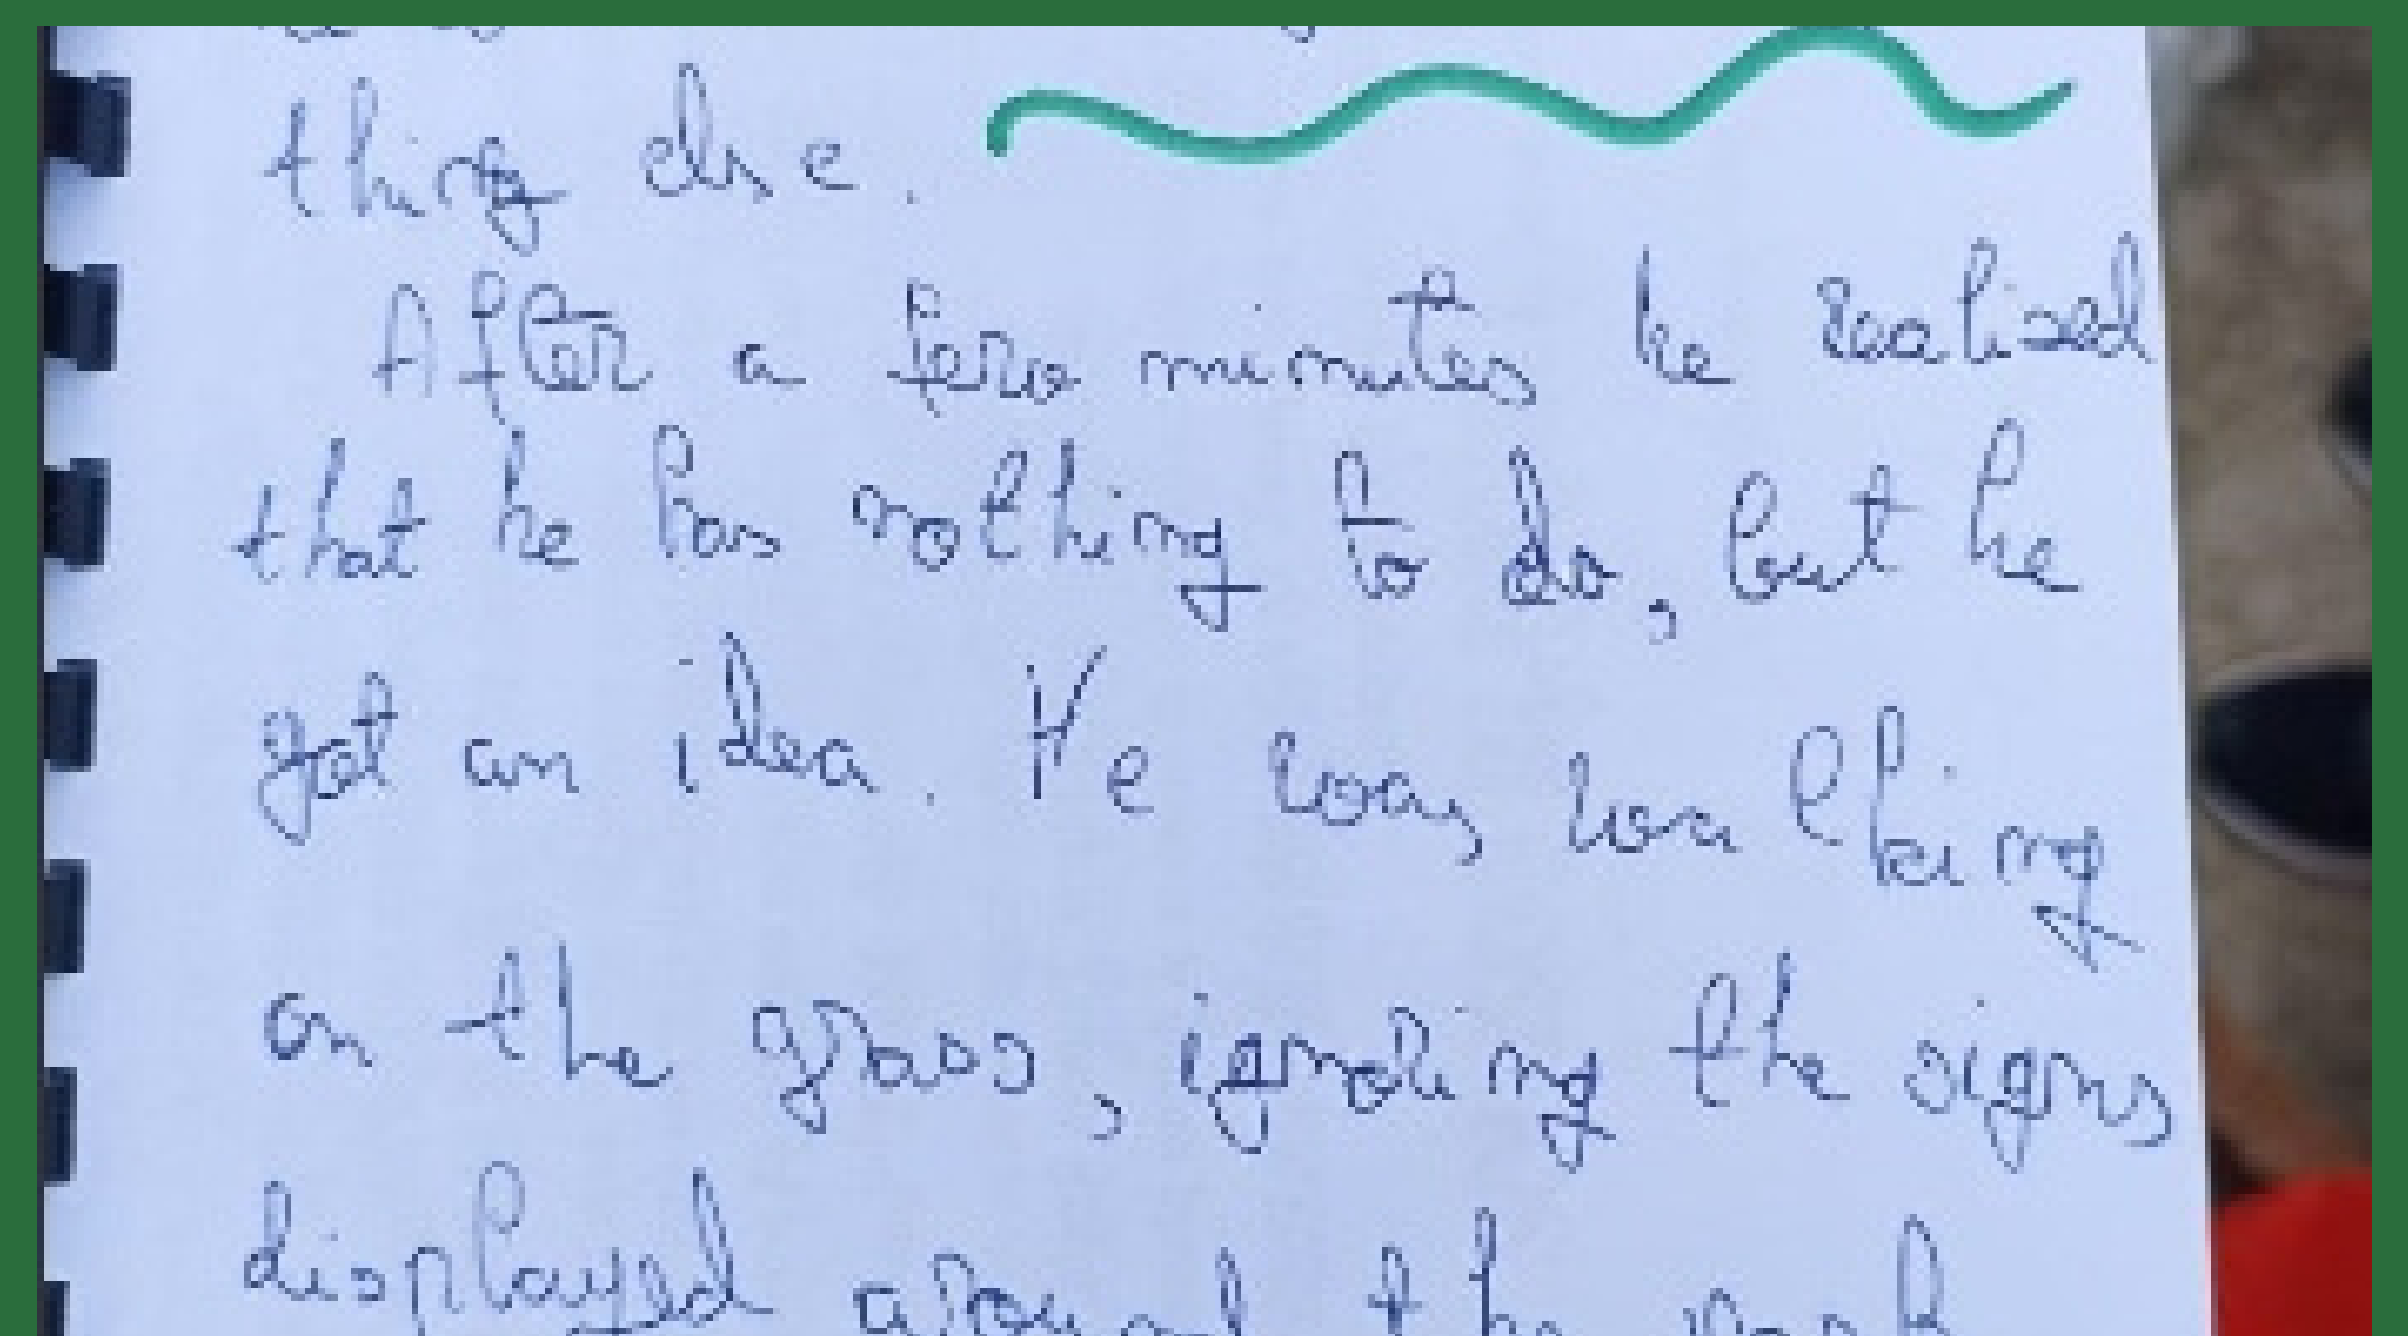 thing else.
After a few minutes he realized
that he has nothing to do, but he
got an idea. He was walking
on the grass, ignoring the signs
displayed around the park